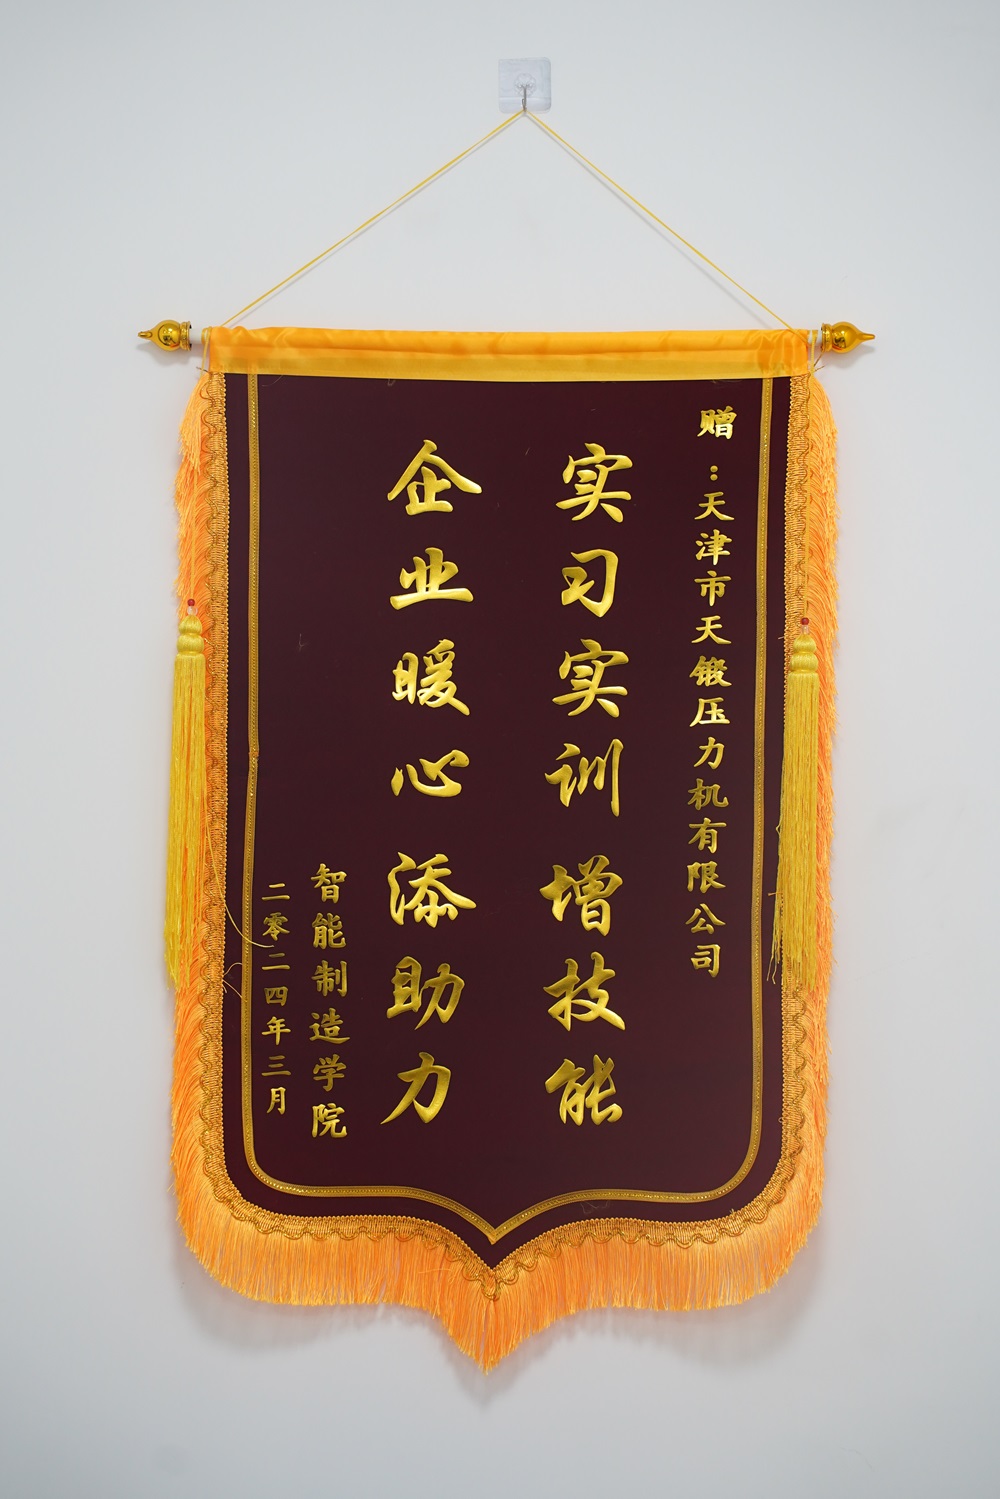 赠：天津市天锻压力机有限公司
实习实训增技能
企业暖心添助力
智能制造学院
二零二四年三月